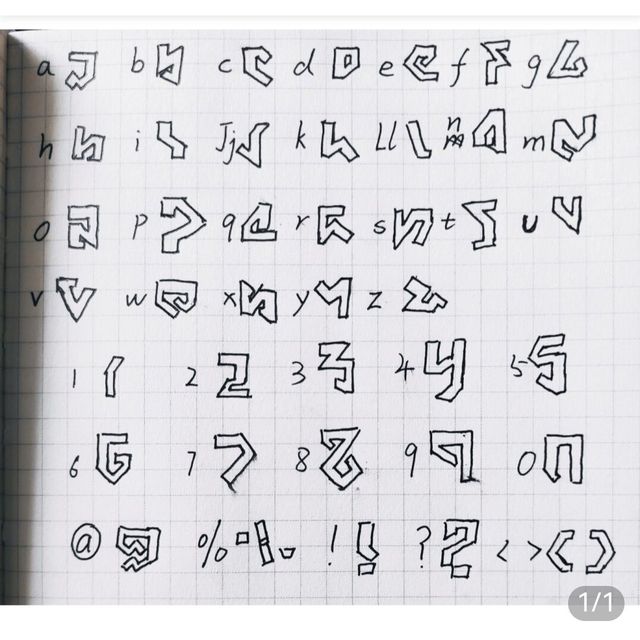 a b c d e f g
h i Jj k Ll n m
o p q r s t u
v w x y z
1 2 3 4 5
6 7 8 9 0
@ % ! ? < >
1/1